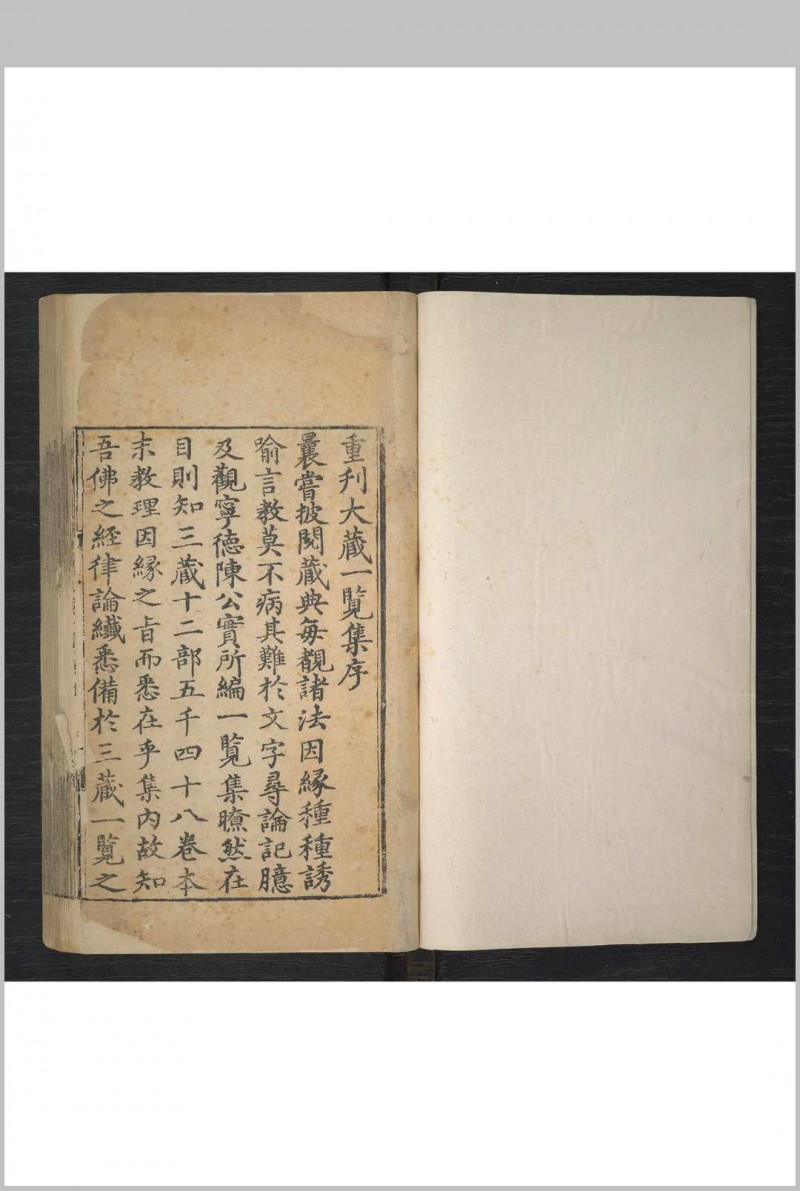 重刋大藏一覽集序
曩嘗披閱藏典每覩諸法因緣種種誘
喻言教莫不病其難於文字尋論記臆
及觀寧德陳公實所編一覽集瞭然在
目則知三藏十二部五千四十八卷本
末教理因緣之旨而悉在乎集內故知
吾佛之經律論纖悉備於三藏一覽之